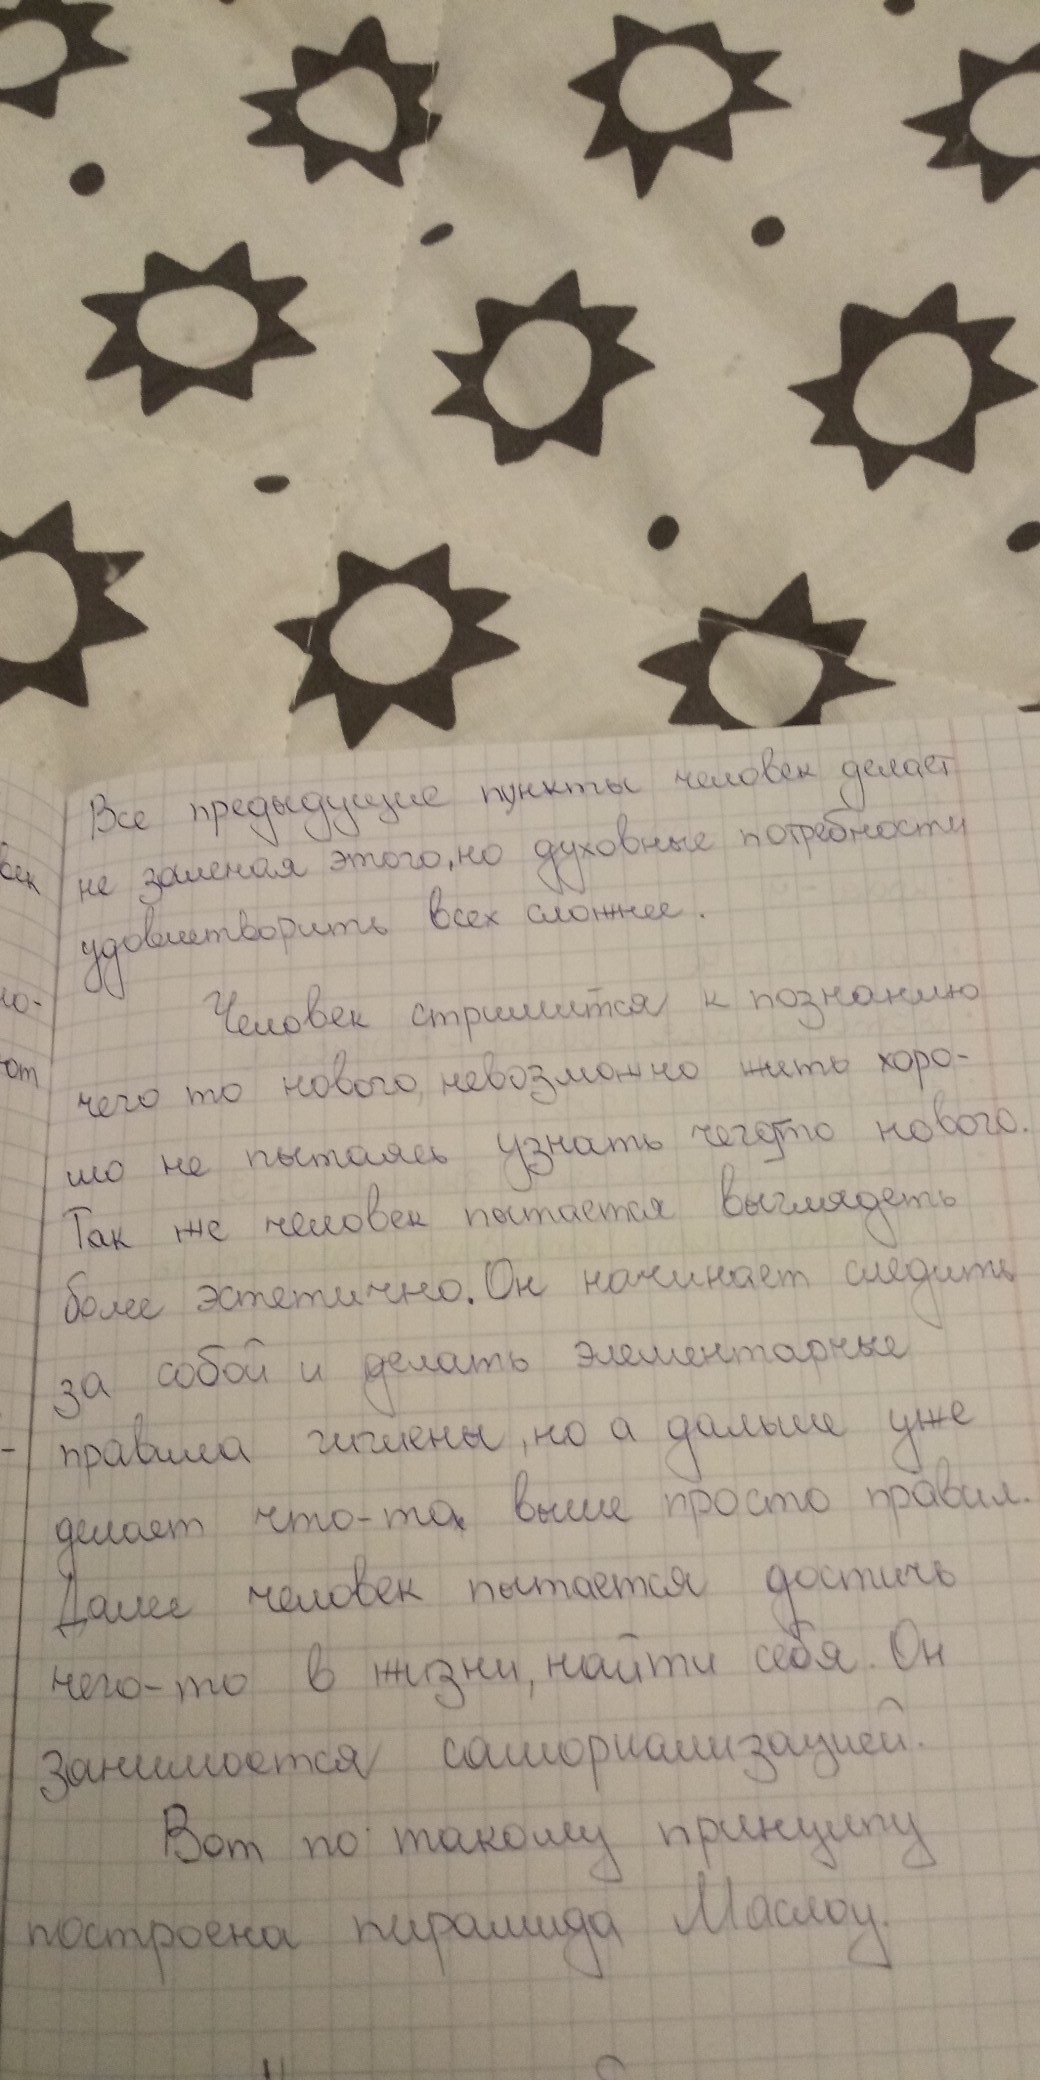 Все предыдущие пункты человек делает
не замечая этого, но духовные потребности
удовлетворить всех сложнее.
Человек стримится к познанию
чего то нового, невозможно жить хоро-
шо не пытаясь узнать чего-то нового.
Так же человек пытается выглядеть
более эстетично. Он начинает следить
за собой и делать элементарные
правила гигиены, но а дальше уже
делает что-то выше просто правил.
Далее человек пытается достичь
чего-то в жизни, найти себя. Он
занимается самориализацией.
Вот по такому принципу
построена пирамида Маслоу.